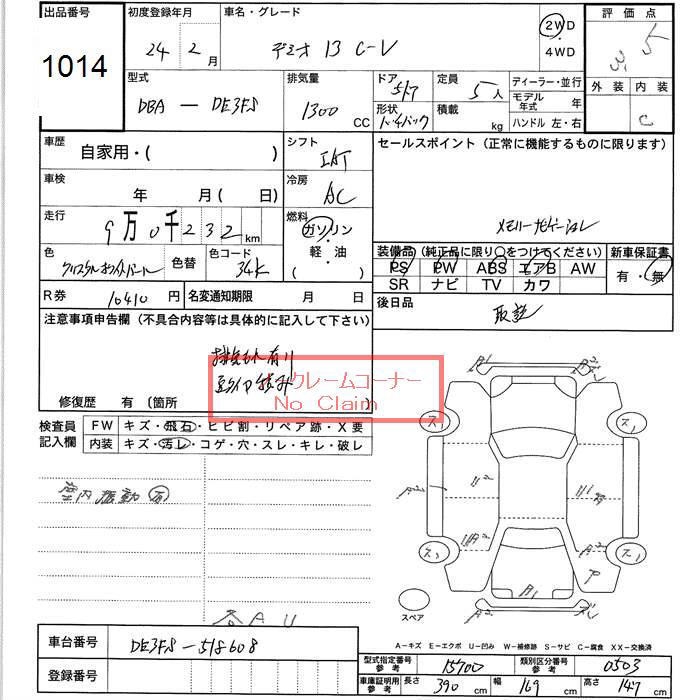 出品番号
1014
初度登録年月
24 2月
車名・グレード
デミオ 13 C-V
2WD
4WD
評価点
3.5
外装 内装
C
型式
DBA - DE3FS
排気量
1300 CC
ドア
5ド
形状
ハッチバック
定員
5人
積載
kg
ディーラー・並行
モデル年式 年
ハンドル 左・右
車歴
自家用・( )
シフト
IAT
セールスポイント (正常に機能するものに限ります)
メモリーナビゲーション
車検
年 月( 日)
冷房
AC
走行
9万0千232km
燃料
ガソリン
軽・油
( )
色
クリスタルホワイトパール
色替
色コード
34K
装備品 (純正品に限り○をつけてください)
PS PW ABS エアB AW
SR ナビ TV カワ
新車保証書
有・無
R券 10410円
名変通知期限 月 日
後日品
取説
注意事項申告欄 (不具合内容等は具体的に記入して下さい)
ノークレームコーナー
No Claim
修復歴 有 〔箇所
検査員記入欄
FW キズ・飛石・ヒビ割・リペア跡・X要
内装 キズ・汚レ・コゲ・穴・スレ・キレ・破レ
室内振動有
各AU
スペア
A-キズ E-エクボ U-凹み W-補修跡 S-サビ C-腐食 XX-交換済
車台番号 DE3FS-518608
登録番号
型式指定番号 参考 15700
類別区分番号 参考 0503
車庫証明用 参考 長さ 390cm 幅 169cm 高さ 147cm